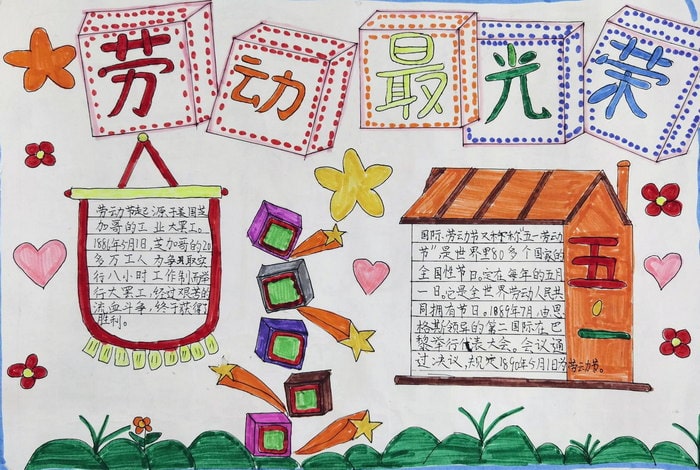 劳动最光荣
劳动节起源于美国芝
加哥的工业大罢工。
1886年5月1日,芝加哥的20
多万工人为争取实
行八小时工作制而举
行大罢工,经过艰苦的
流血斗争,终于获得了
胜利。
国际劳动节又称“五一劳动
节”是世界里80多个国家的
全国性节日。定在每年的五月
一日。它是全世界劳动人民共
同拥有节日。1889年7月,由恩
格斯领导的第二国际在巴
黎举行代表大会。会议通
过决议,规定1890年5月1日为劳动节。
五
一